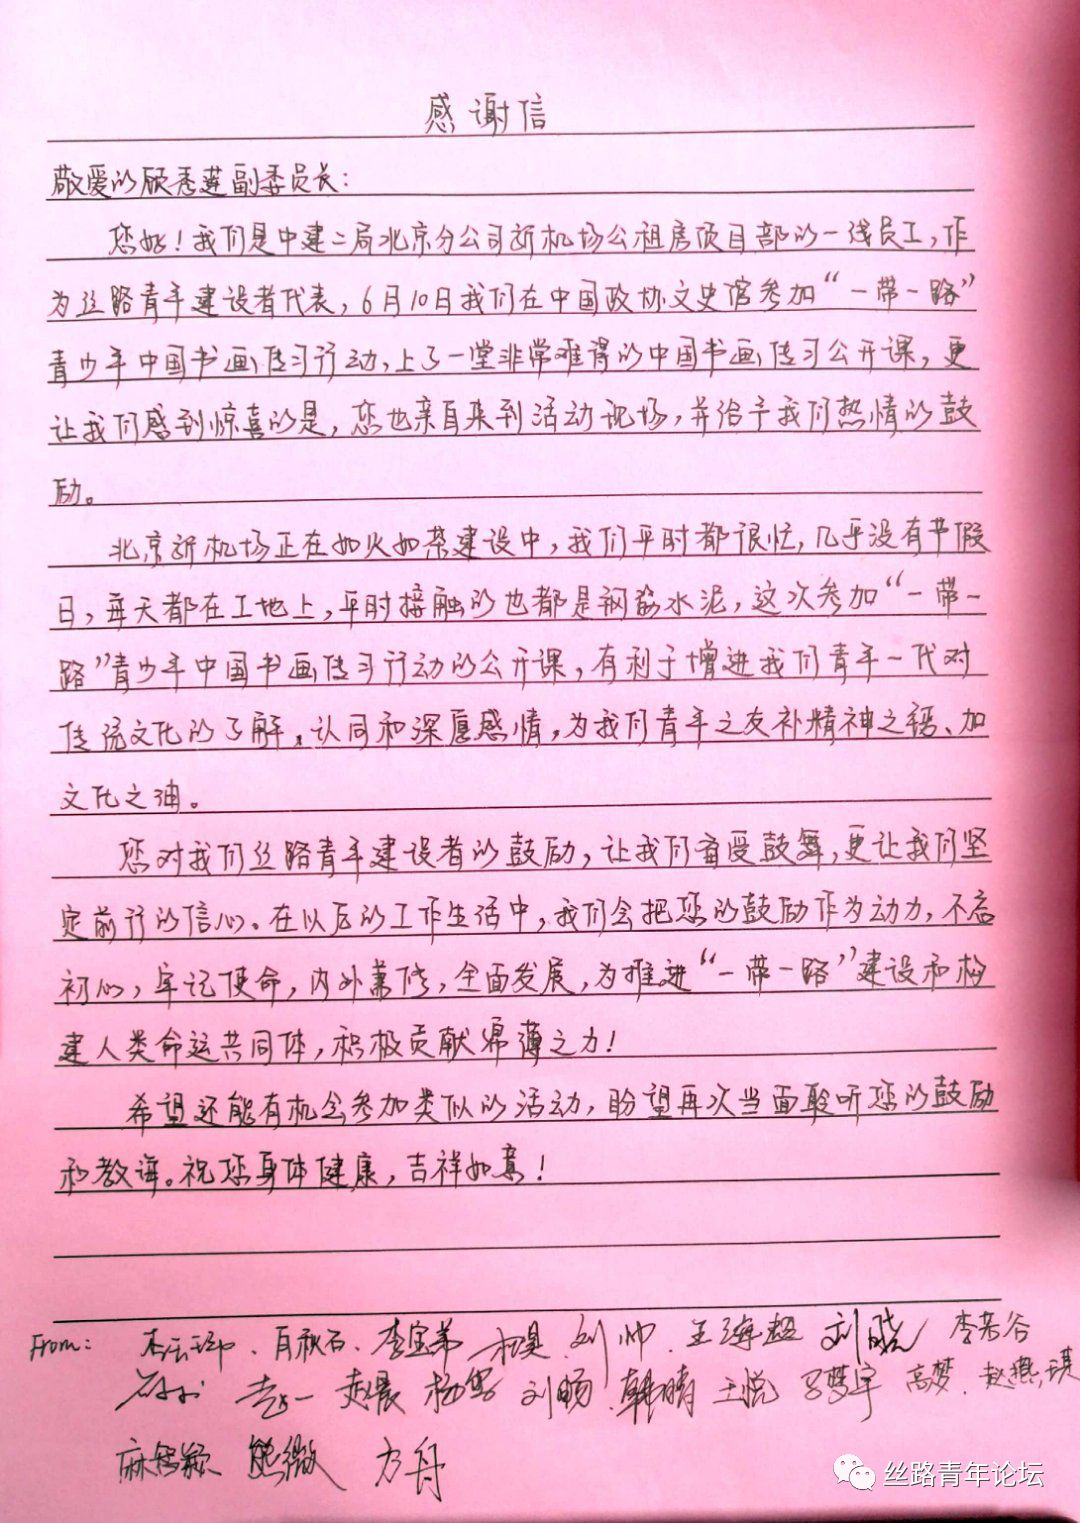 感谢信
敬爱的顾秀莲副委员长：
您好！我们是中建二局北京分公司新机场公租房项目部的一线员工，作
为丝路青年建设者代表，6月10日我们在中国政协文史馆参加“一带一路”
青少年中国书画传习行动，上了一堂非常难得的中国书画传习公开课，更
让我们感到惊喜的是，您也亲自来到活动现场，并给予我们热情的鼓
励。
北京新机场正在如火如荼建设中，我们平时都很忙，几乎没有节假
日，每天都在工地上，平时接触的也都是钢筋水泥，这次参加“一带一
路”青少年中国书画传习行动的公开课，有利于增进我们青年一代对
传统文化的了解、认同和深厚感情，为我们青年之友补精神之钙、加
文化之油。
您对我们丝路青年建设者的鼓励，让我们备受鼓舞，更让我们坚
定前行的信心。在以后的工作生活中，我们会把您的鼓励作为动力，不忘
初心，牢记使命，内外兼修，全面发展，为推进“一带一路”建设和构
建人类命运共同体，积极贡献绵薄之力！
希望还能有机会参加类似的活动，盼望再次当面聆听您的鼓励
和教诲。祝您身体健康，吉祥如意！
From: 肖秋石、李宝弟 刘帅 王海超 刘晓 李若谷
赵晨 杨宇 刘畅 韩晴 王悦 高梦 赵燕琪
熊微 方舟
丝路青年论坛